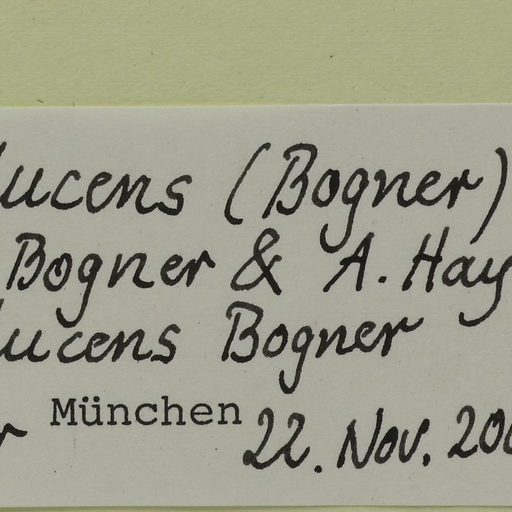 lucens (Bogner)
Bogner & A. Hay
lucens Bogner
r München 22. Nov. 200